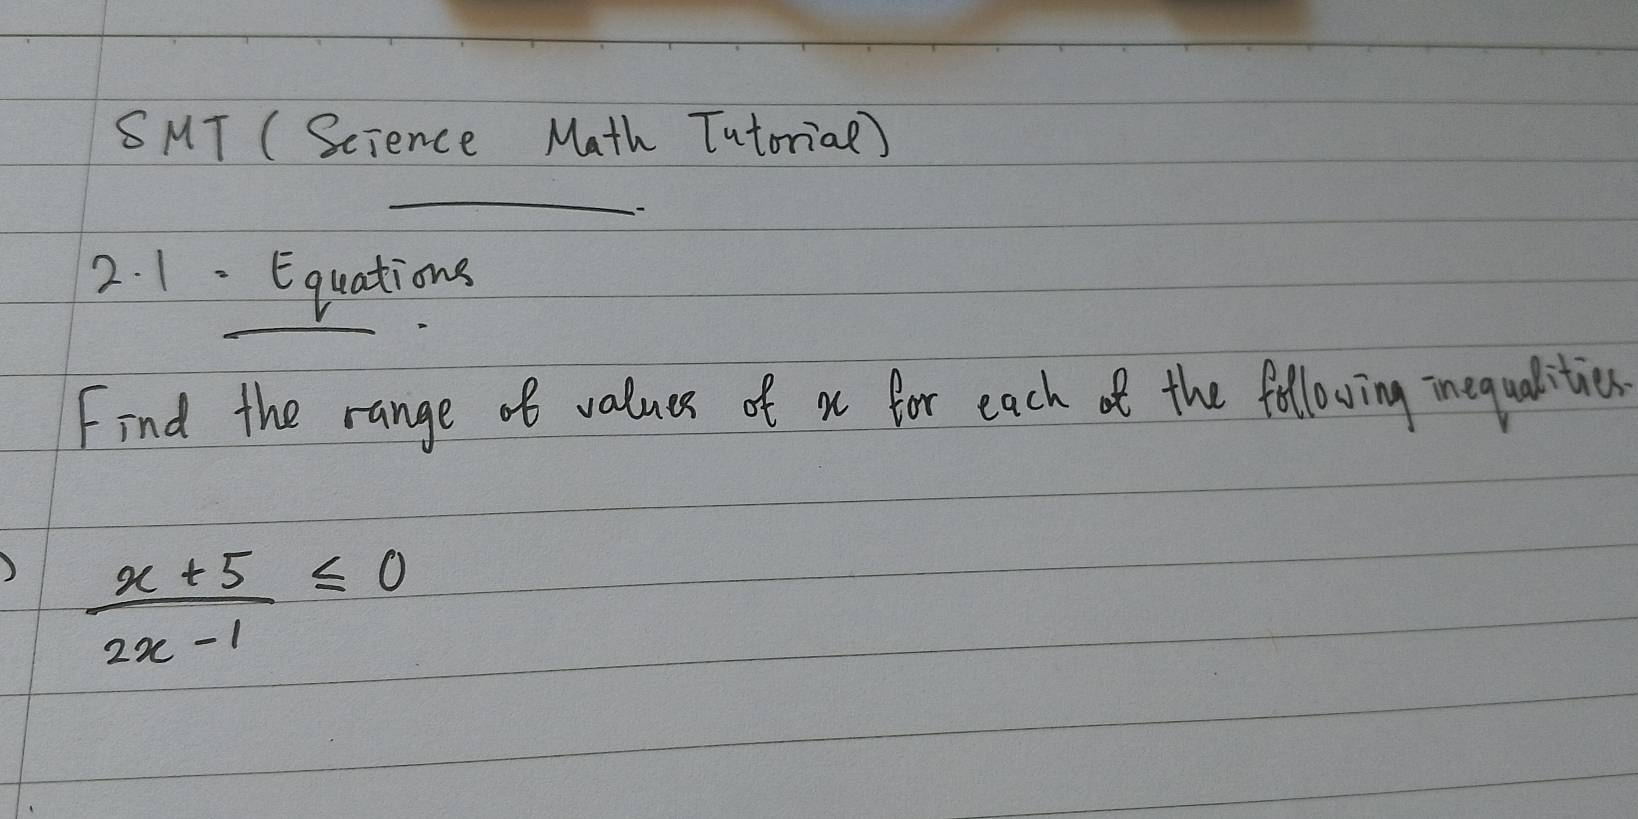 SMT ( Science Math Tutorial)
2.1 - Equations
Find the range of values of x for each of the following inequalities.
) x + 5 ≤ 0
2x - 1